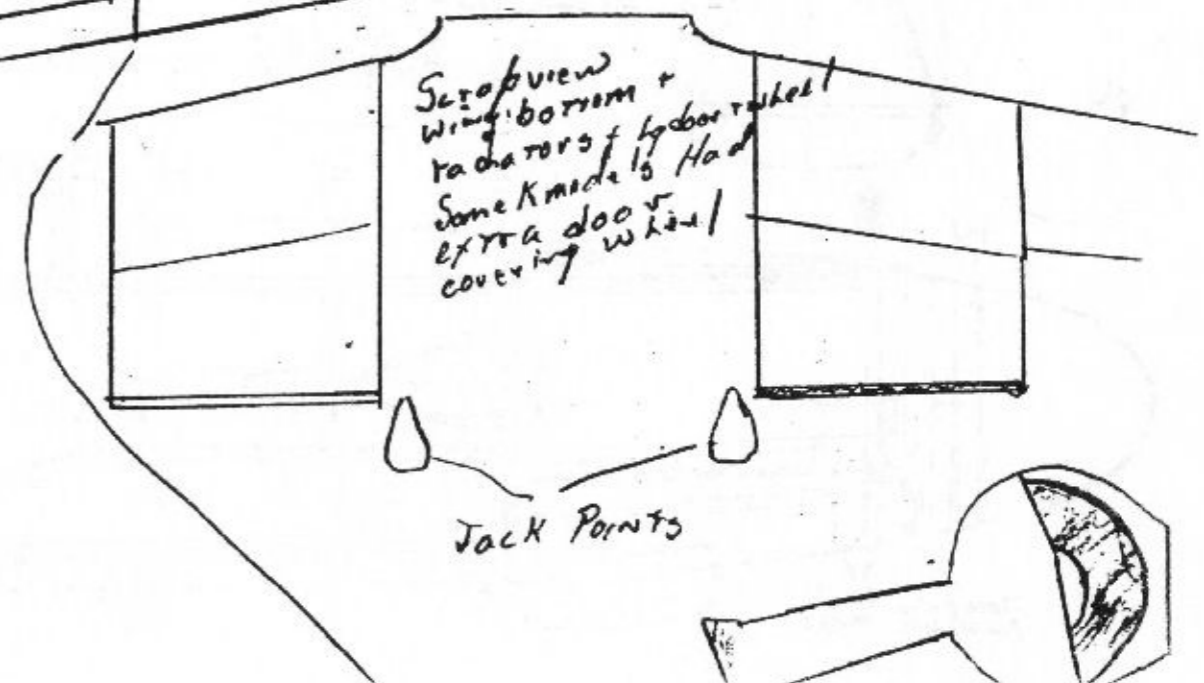 view
wing bottom +
radiators + lg door + wheel
Some K models Had
extra door
covering wheel
Jack Points